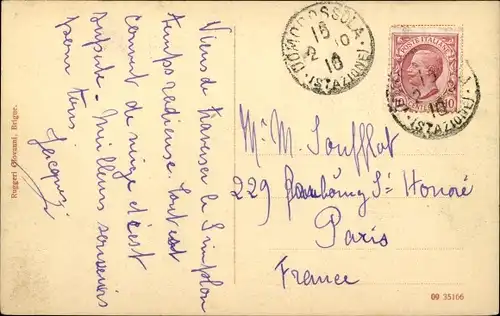 Viens de traverser le Simplon
temps radieuse. Tout est
couvert de neige c'est
superbe. Meilleurs souvenirs
pour tous.
Jacques
Ruggeri Giovanni, Belgue.
DOMODOSSOLA
15
2 10
10
(STAZIONE)
POSTE ITALIANE
10
(STAZIONE)
Mr M. Soufflot
229 Faubourg St Honoré
Paris
France
09 35166